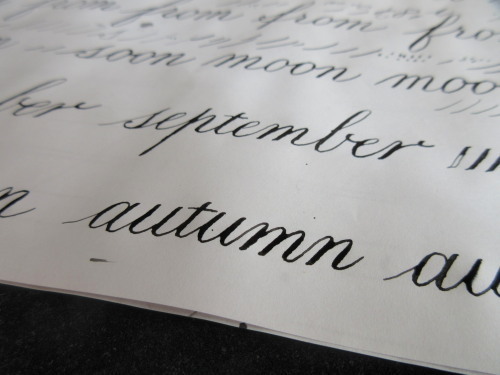 from from from fro
soon moon moo
ber september
n autumn au